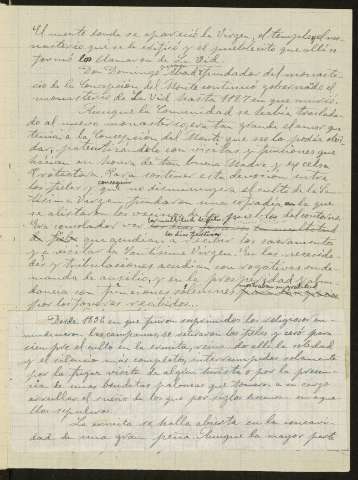 El monte donde se apareció la Virgen, el templo y el mo-
nasterio que se le edificó y el pueblecito que allí se
formó los llamaron de La Vid.
Don Domingo, Abad y fundador del monaste-
rio de la Concepción del Monte continuó gobernando el
monasterio de La Vid hasta 1187 en que murió.
Aunque la comunidad se había traslada-
do al nuevo monasterio era tan grande el amor que
tenía a la Concepción del Monte que no la podía olvi-
dar, patentizándolo con visitas y funciones que
hacían en honra de tan buena Madre y excelsa
Protectora. Para sostener esta devoción entre
los fieles y conseguir que no disminuyera el culto de la San-
tísima Virgen, fundaron una cofradía en la que
se alistaron los vecinos de los pueblos del contorno.
Era consolador ver
los días festivos
que acudían a recibir los sacramentos
y a visitar la Santísima Virgen. En las necesida-
des y tribulaciones acudían con rogativas en de-
manda de auxilio, y en la prosperidad y abun-
dancia con funciones solemnes mostraban su gratitud
por los favores recibidos.
Desde 1836 en que fueron suprimidos los religiosos en-
mudecieron las campanas, se retiraron los fieles y cesó para
siempre el culto en la ermita, reina en ella la soledad
y el silencio más completos, interrumpidos solamente
por la fugaz visita de algún turista o por la presen-
cia de unas benditas palomas que toman a su cargo
arrullar el sueño de los que por siglos duermen en aque-
llos sepulcros.
La ermita se halla abierta en la concavi-
dad de una gran peña. Aunque la mayor parte